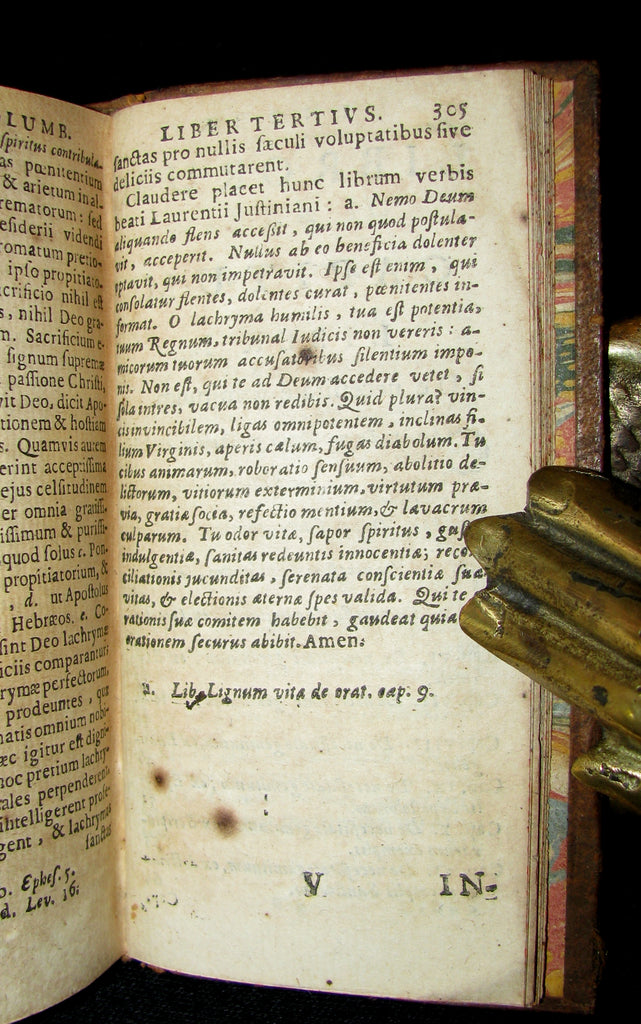 LUMB.
spiritus contribula-
as pœnitentium
& arietum in al-
rematorum: sed
esiderii videndi
romatum pretio-
ipso propitiato-
crificio nihil est
, nihil Deo gra-
m. Sacrificium e-
signum supremæ
passione Christi,
vit Deo, dicit Apo-
tionem & hostiam
s. Quamvis autem
erint acceptissima
ejus celsitudinem
er omnia gratis-
issimum & purissi-
quod solus c. Pon-
propitiatorium, &
, d. ut Apostolus
Hebræos. e. Co-
sint Deo lachrymæ
iciis comparantur
rymæ perfectorum,
prodeuntes, quæ
matis omnium nobi-
æc igitur est digni-
hoc pretium lachry-
ales perpenderent,
intelligerent profe-
gent, & lachrymas
sanctas
b. Ephes. 5.
d. Lev. 16.
LIBER TERTIVS. 305
sanctas pro nullis sæculi voluptatibus sive
deliciis commutarent.
Claudere placet hunc librum verbis
beati Laurentii Justiniani: a. Nemo Deum
aliquando flens accessit, qui non quod postula-
vit, acceperit. Nullus ab eo beneficia dolenter
optavit, qui non impetravit. Ipse est enim, qui
consolatur flentes, dolentes curat, pœnitentes in-
format. O lachryma humilis, tua est potentia,
tuum Regnum, tribunal Iudicis non vereris: a-
micorum tuorum accusatoribus silentium impo-
nis. Non est, qui te ad Deum accedere vetet, si
sola intres, vacua non redibis. Quid plura? vin-
cis invincibilem, ligas omnipotentem, inclinas fi-
lium Virginis, aperis cælum, fugas diabolum. Tu
cibus animarum, roboratio sensuum, abolitio de-
lictorum, vitiorum exterminium, virtutum præ-
via, gratiæ socia, refectio mentium, & lavacrum
culparum. Tu odor vitæ, sapor spiritus, gus
indulgentiæ, sanitas redeuntis innocentiæ; reco
ciliationis jucunditas, serenata conscientiæ sua
vitas, & electionis æternæ spes valida. Qui te
rationis suæ comitem habebit, gaudeat quia
orationem securus abibit. Amen.
a. Lib. Lignum vitæ de orat. cap. 9.
V IN-